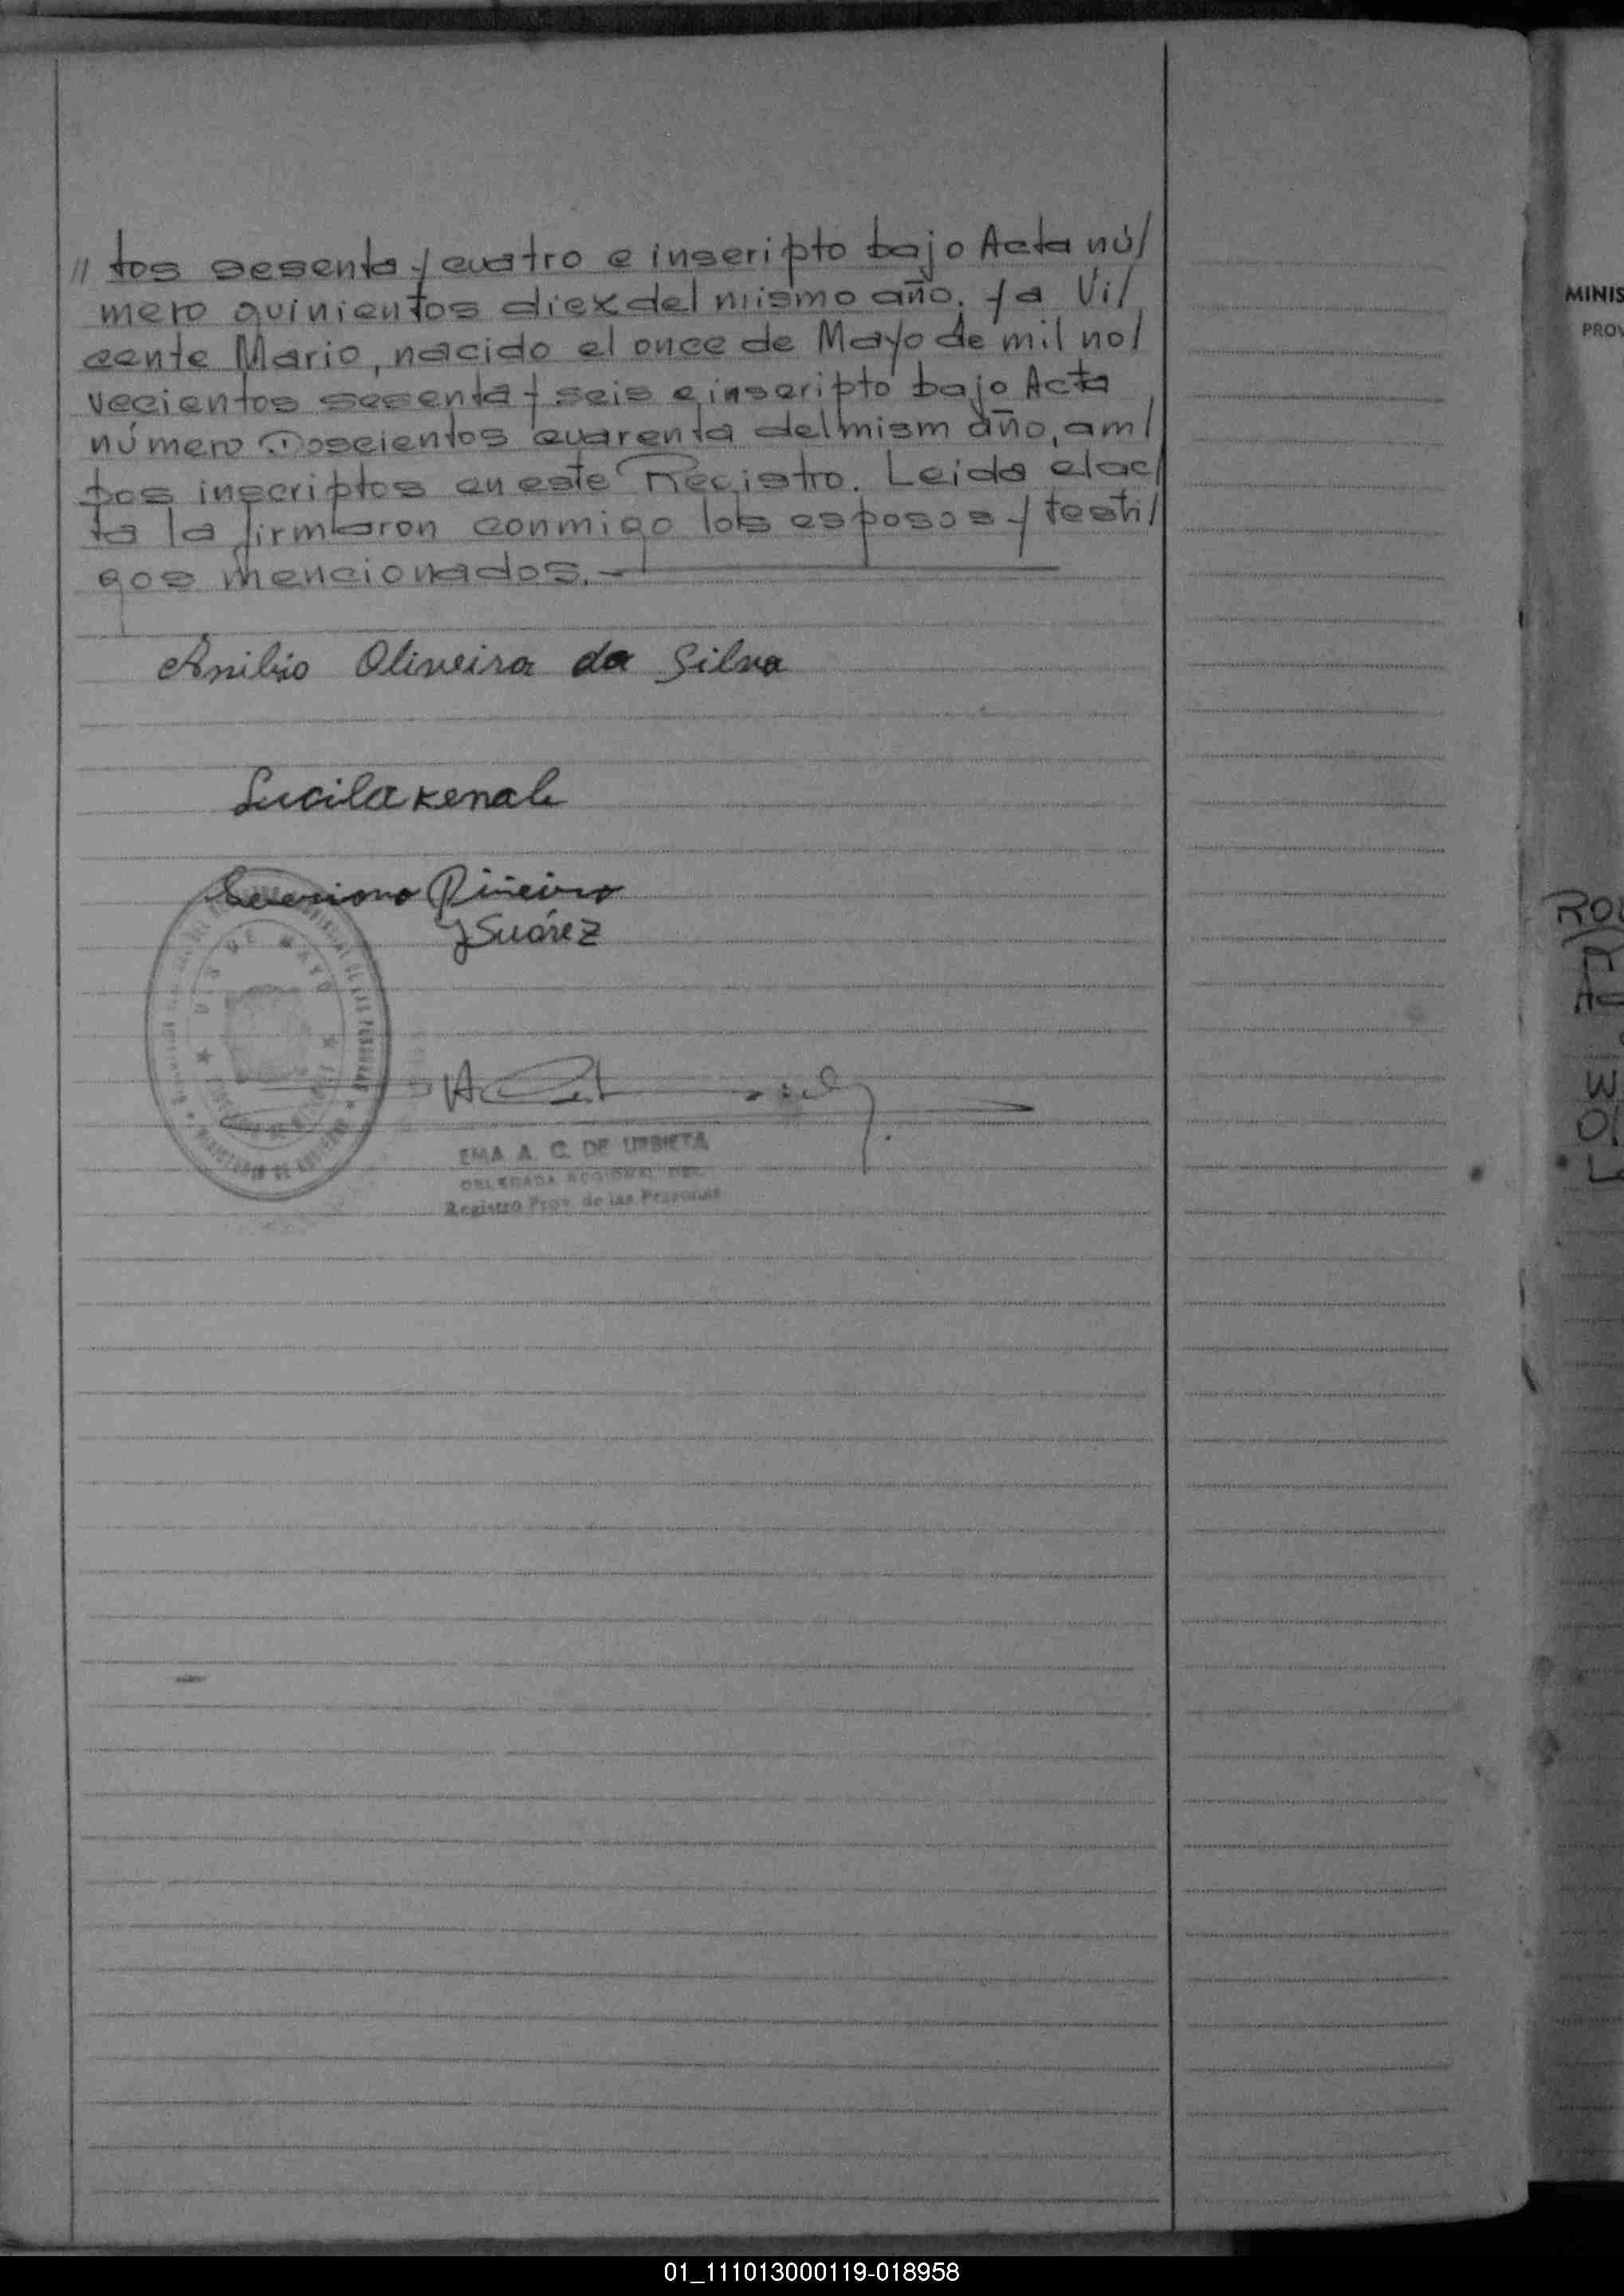 // tos sesenta y cuatro e inscripto bajo Acta nú/
mero quinientos diez del mismo año, y a Vi/
cente Mario, nacido el once de Mayo de mil no/
vecientos sesenta y seis e inscripto bajo Acta
número Doscientos cuarenta del mism año, am/
bos inscriptos en este Registro. Leida el ac/
ta la firmaron conmigo los esposos y testi/
gos mencionados.-
Anibio Oliveira da Silva
Lucila Kenal
Severiano Piñeiro
J Suárez
EMA A. C. DE URBIETA
DELEGADA REGIONAL DEL
Registro Prov. de las Personas
MINIS
PROV
ROL
W
01_111013000119-018958